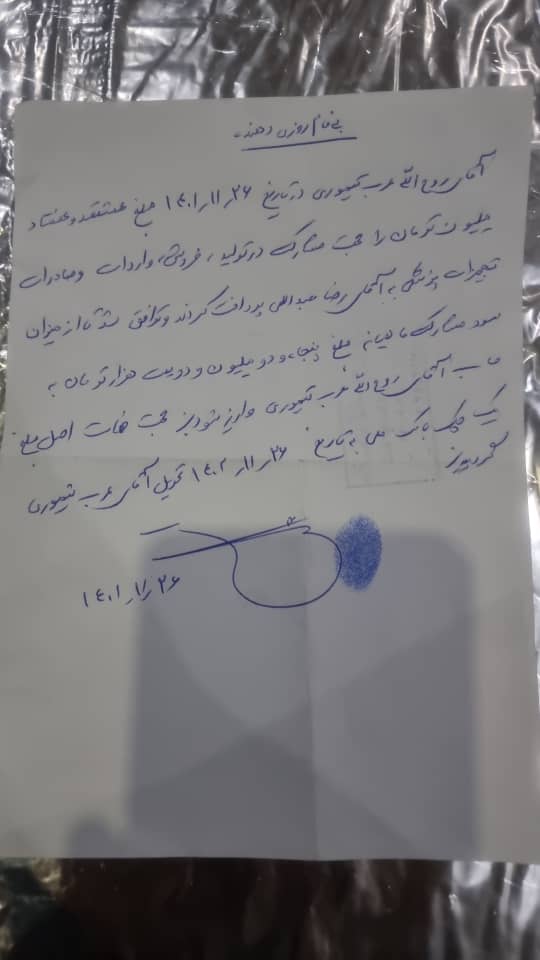 بنام روزی دهنده
آقای روح الله عرب تیموری در تاریخ ۱۴۰۱/۱۱/۲۶ مبلغ هشتصد و هفتاد
میلیون تومان را جهت مشارکت در تولید، فروش، واردات و صادرات
تجهیزات پزشکی به آقای رضا عبداللهی پرداخت کردند و توافق شد تا از میزان
سود مشارکت ماهیانه مبلغ پنجاه و دو میلیون و دویست هزار تومان به
حساب آقای روح الله عرب تیموری واریز شود و نیز جهت ضمانت اصل مبلغ
یک چک بانک ملی به تاریخ ۱۴۰۲/۱۱/۲۶ تحویل آقای عرب تیموری
گردید
۱۴۰۱/۱۱/۲۶